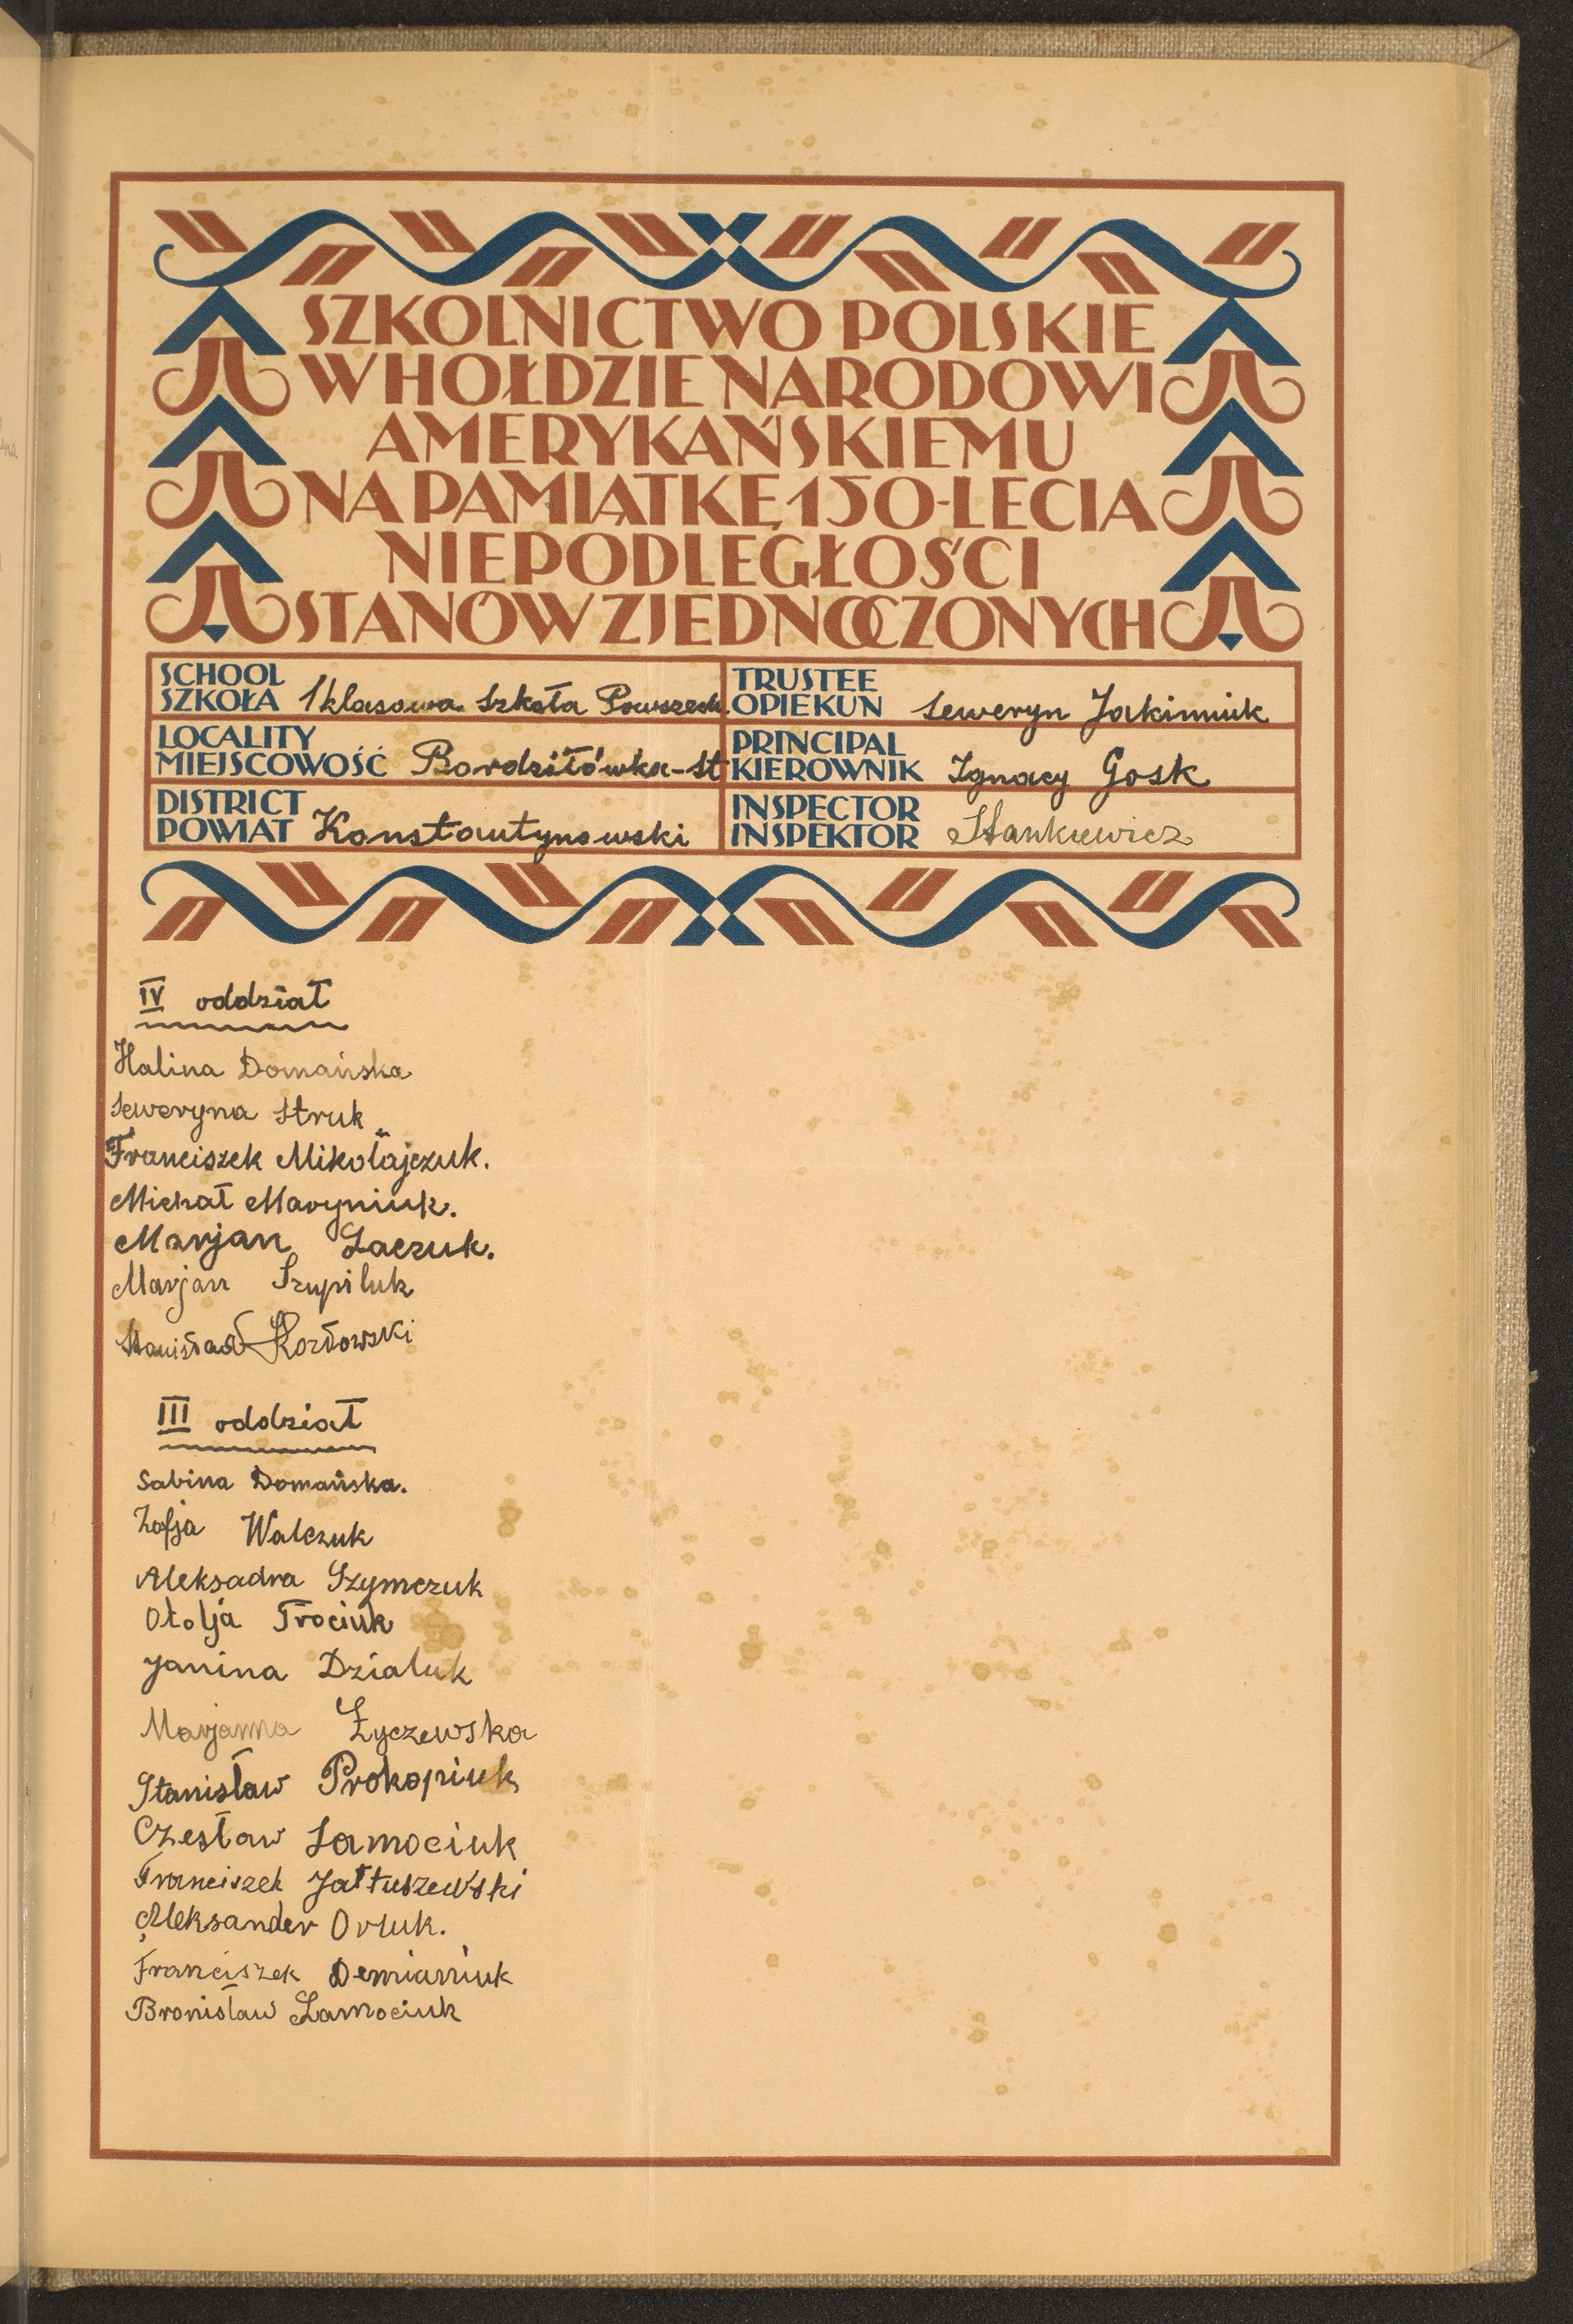 SZKOLNICTWO POLSKIE
W HOŁDZIE NARODOWI
AMERYKAŃSKIEMU
NA PAMIĄTKĘ 150-LECIA
NIEPODLEGŁOŚCI
STANÓW ZJEDNOCZONYCH
SCHOOL
SZKOŁA 1 klasowa Szkoła Powszech.
TRUSTEE
OPIEKUN Seweryn Jakimiuk
LOCALITY
MIEJSCOWOŚĆ Bordziłówka-St
PRINCIPAL
KIEROWNIK Ignacy Gosk
DISTRICT
POWIAT Konstantynowski
INSPECTOR
INSPEKTOR Stankiewicz
IV oddział
Halina Domańska
Seweryna Struk
Franciszek Mikołajczuk.
Michał Maryniuk.
Marjan Łaczuk.
Marjan Szupiluk
Stanisław Kozłowski
III oddział
Sabina Domańska.
Zofja Walczuk
Aleksadra Szymczuk
Otolja Trociuk
Janina Dzialuk
Marjanna Łyczewska
Stanisław Prokopiuk
Czesław Łamociuk
Franciszek Jałtuszewski
Aleksander Orluk.
Franciszek Demianiuk
Bronisław Łamociuk